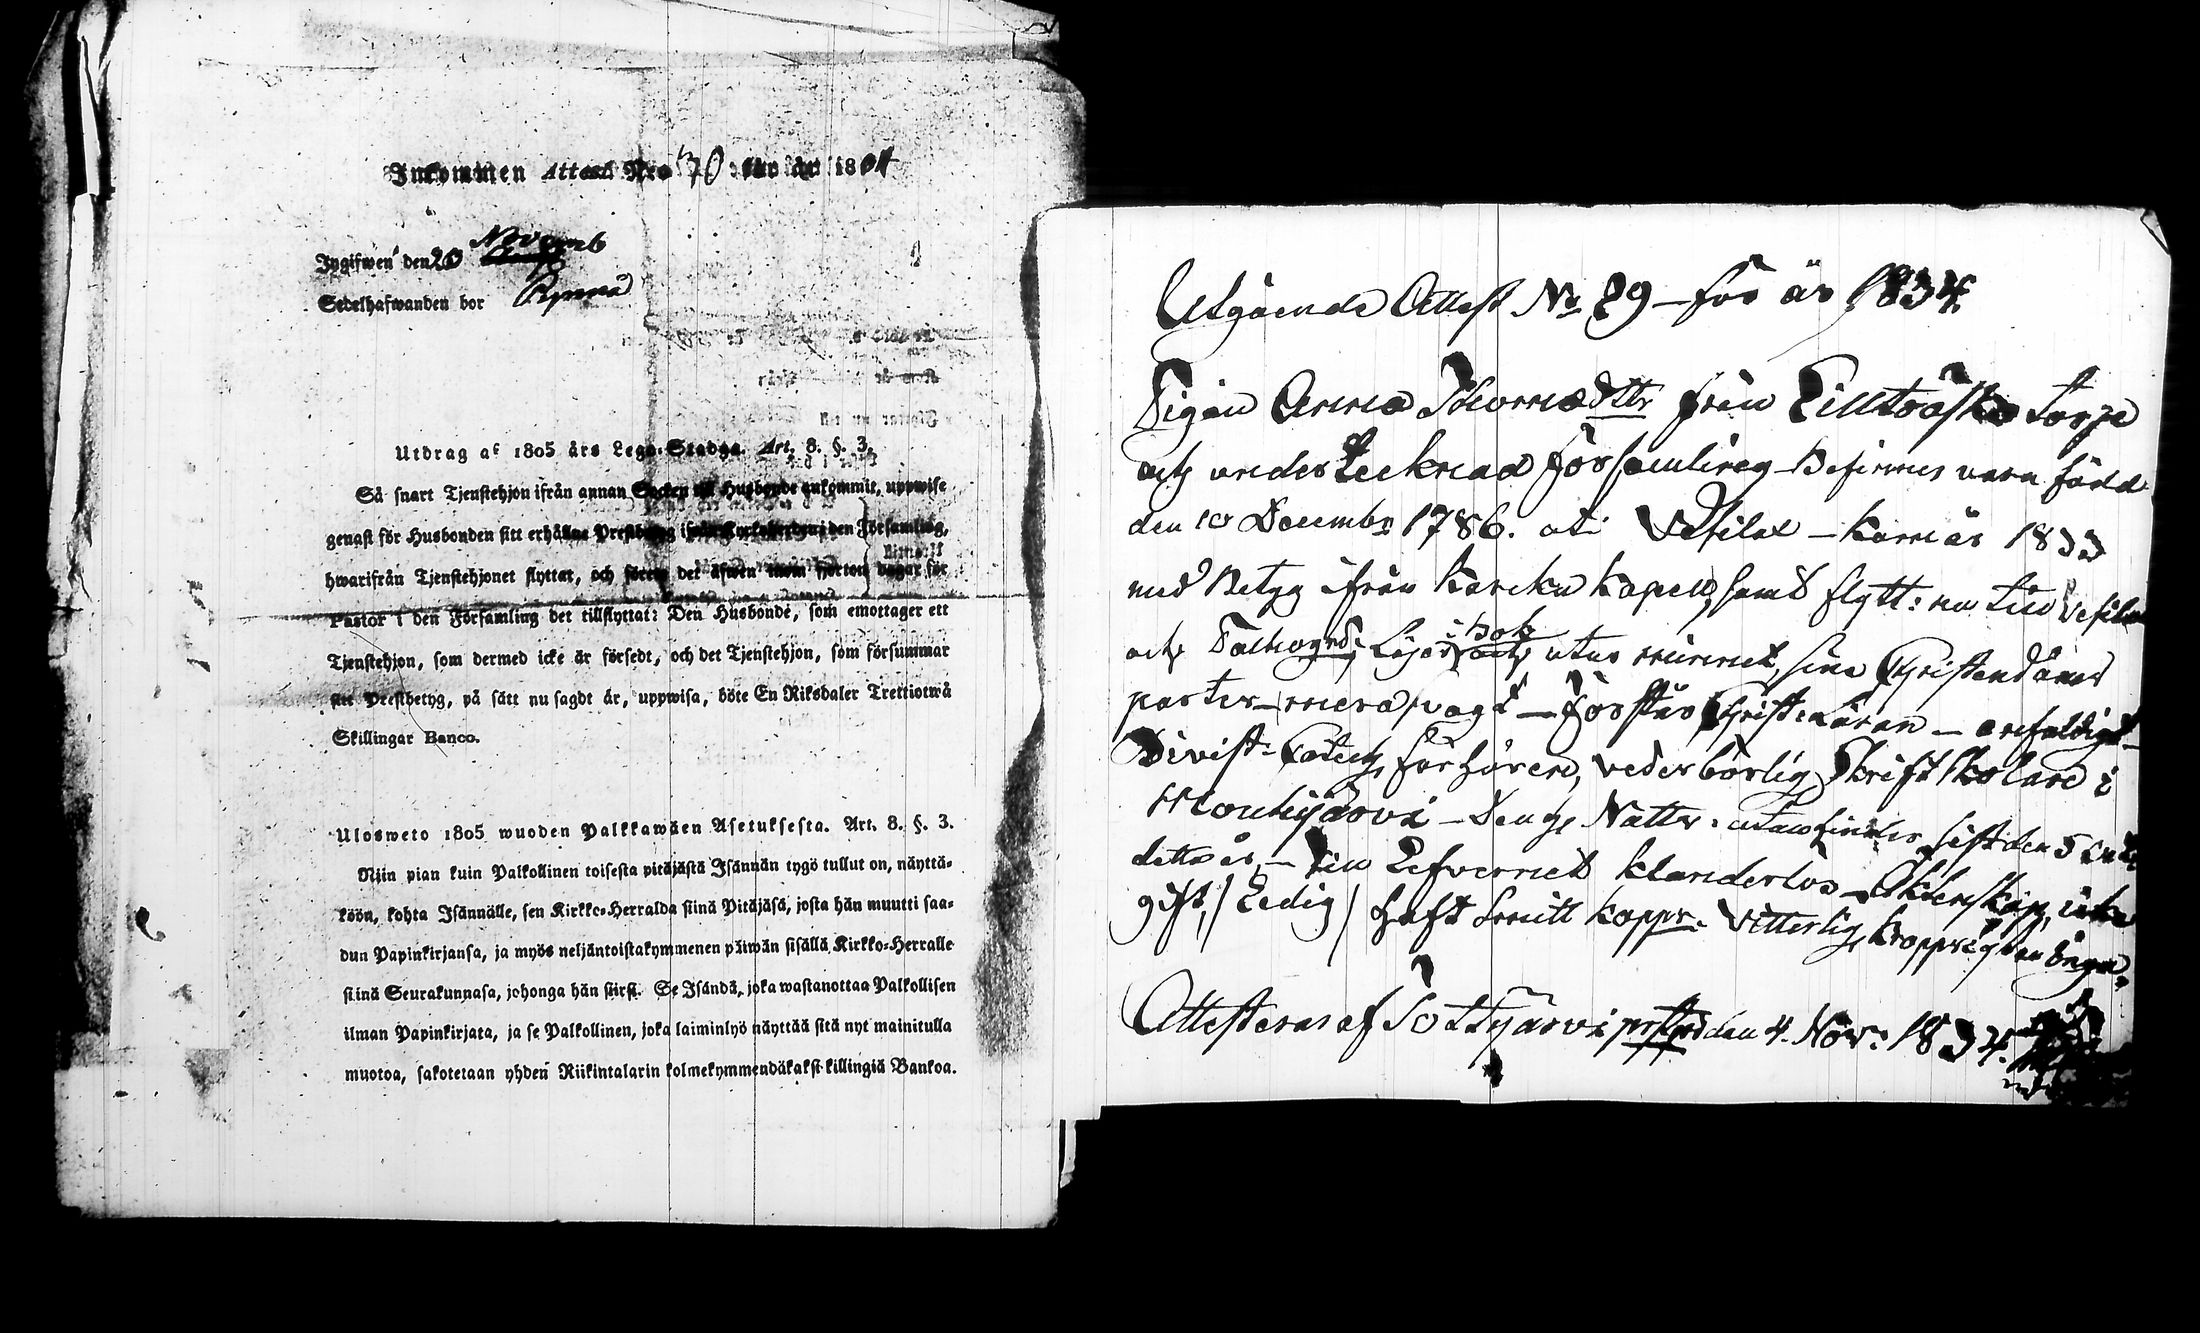 Inkommen Attest Nro 70 för år 1834
Ingifwen den 20 Novemb
Sedelhafwanden bor
Utdrag af 1805 års Lego-Stadga. Art. 8. §. 3.
Så snart Tjenstehjon ifrån annan Socken til Husbonde ankommit, uppwise
genast för Husbonden sitt erhållne Prestbetyg ifrån Kyrkoherden i den Församling,
hwarifrån Tjenstehjonet flyttat, och förete det äfwen inom fjorton dagar för
Pastor i den Församling det tillflyttat: Den Husbonde, som emottager ett
Tjenstehjon, som dermed icke är försedt, och det Tjenstehjon, som försummar
sitt Prestbetyg, på sätt nu sagdt är, uppwisa, böte En Riksdaler Trettiotwå
Skillingar Banco.
Ulosweto 1805 wuoden Palkkawäen Asetuksesta. Art. 8. §. 3.
Niin pian kuin Palkollinen toisesta pitäjästä Isännän tygö tullut on, näyttä-
köön, kohta Isännälle, sen Kirkko-Herralda siinä Pitäjäsä, josta hän muutti saa-
dun Papinkirjansa, ja myös neljäntoistakymmenen päiwän sisällä Kirkko-Herralle
siinä Seurakunnasa, johonga hän siirsi. Se Isändä, joka wastanottaa Palkollisen
ilman Papinkirjata, ja se Palkollinen, joka laiminlyö näyttää sitä nyt mainitulla
muotoa, sakotetaan yhden Riikintalarin kolmekymmendäkaksi killingiä Bankoa.
Utgående Attest No 29 för år 1834
Pigan Anna Thomædttr från Lilltåska torp
och under tecknad församling befinnes vara född
den 10 Decembr 1786. uti Vesilax kom år 1833
med Betyg ifrån Karcku Kapell, samt flytt: nu till Vesilax
och läser i bok och utur minnet, sina Christendoms
parter svagt förstår Christi Läran enfaldigt
Divist: förhören, vederbörlig, Skriftskolare i
Mouhijärvi den H. Nattv: sist den 5
detta år, till Lefvernet klanderlös Äktenskap icke
gift, / Ledig / haft Smitt koppr. Vitterlig kroppslyten inga.
Attesteras af Tottijärvi den 4. Nov: 1834.